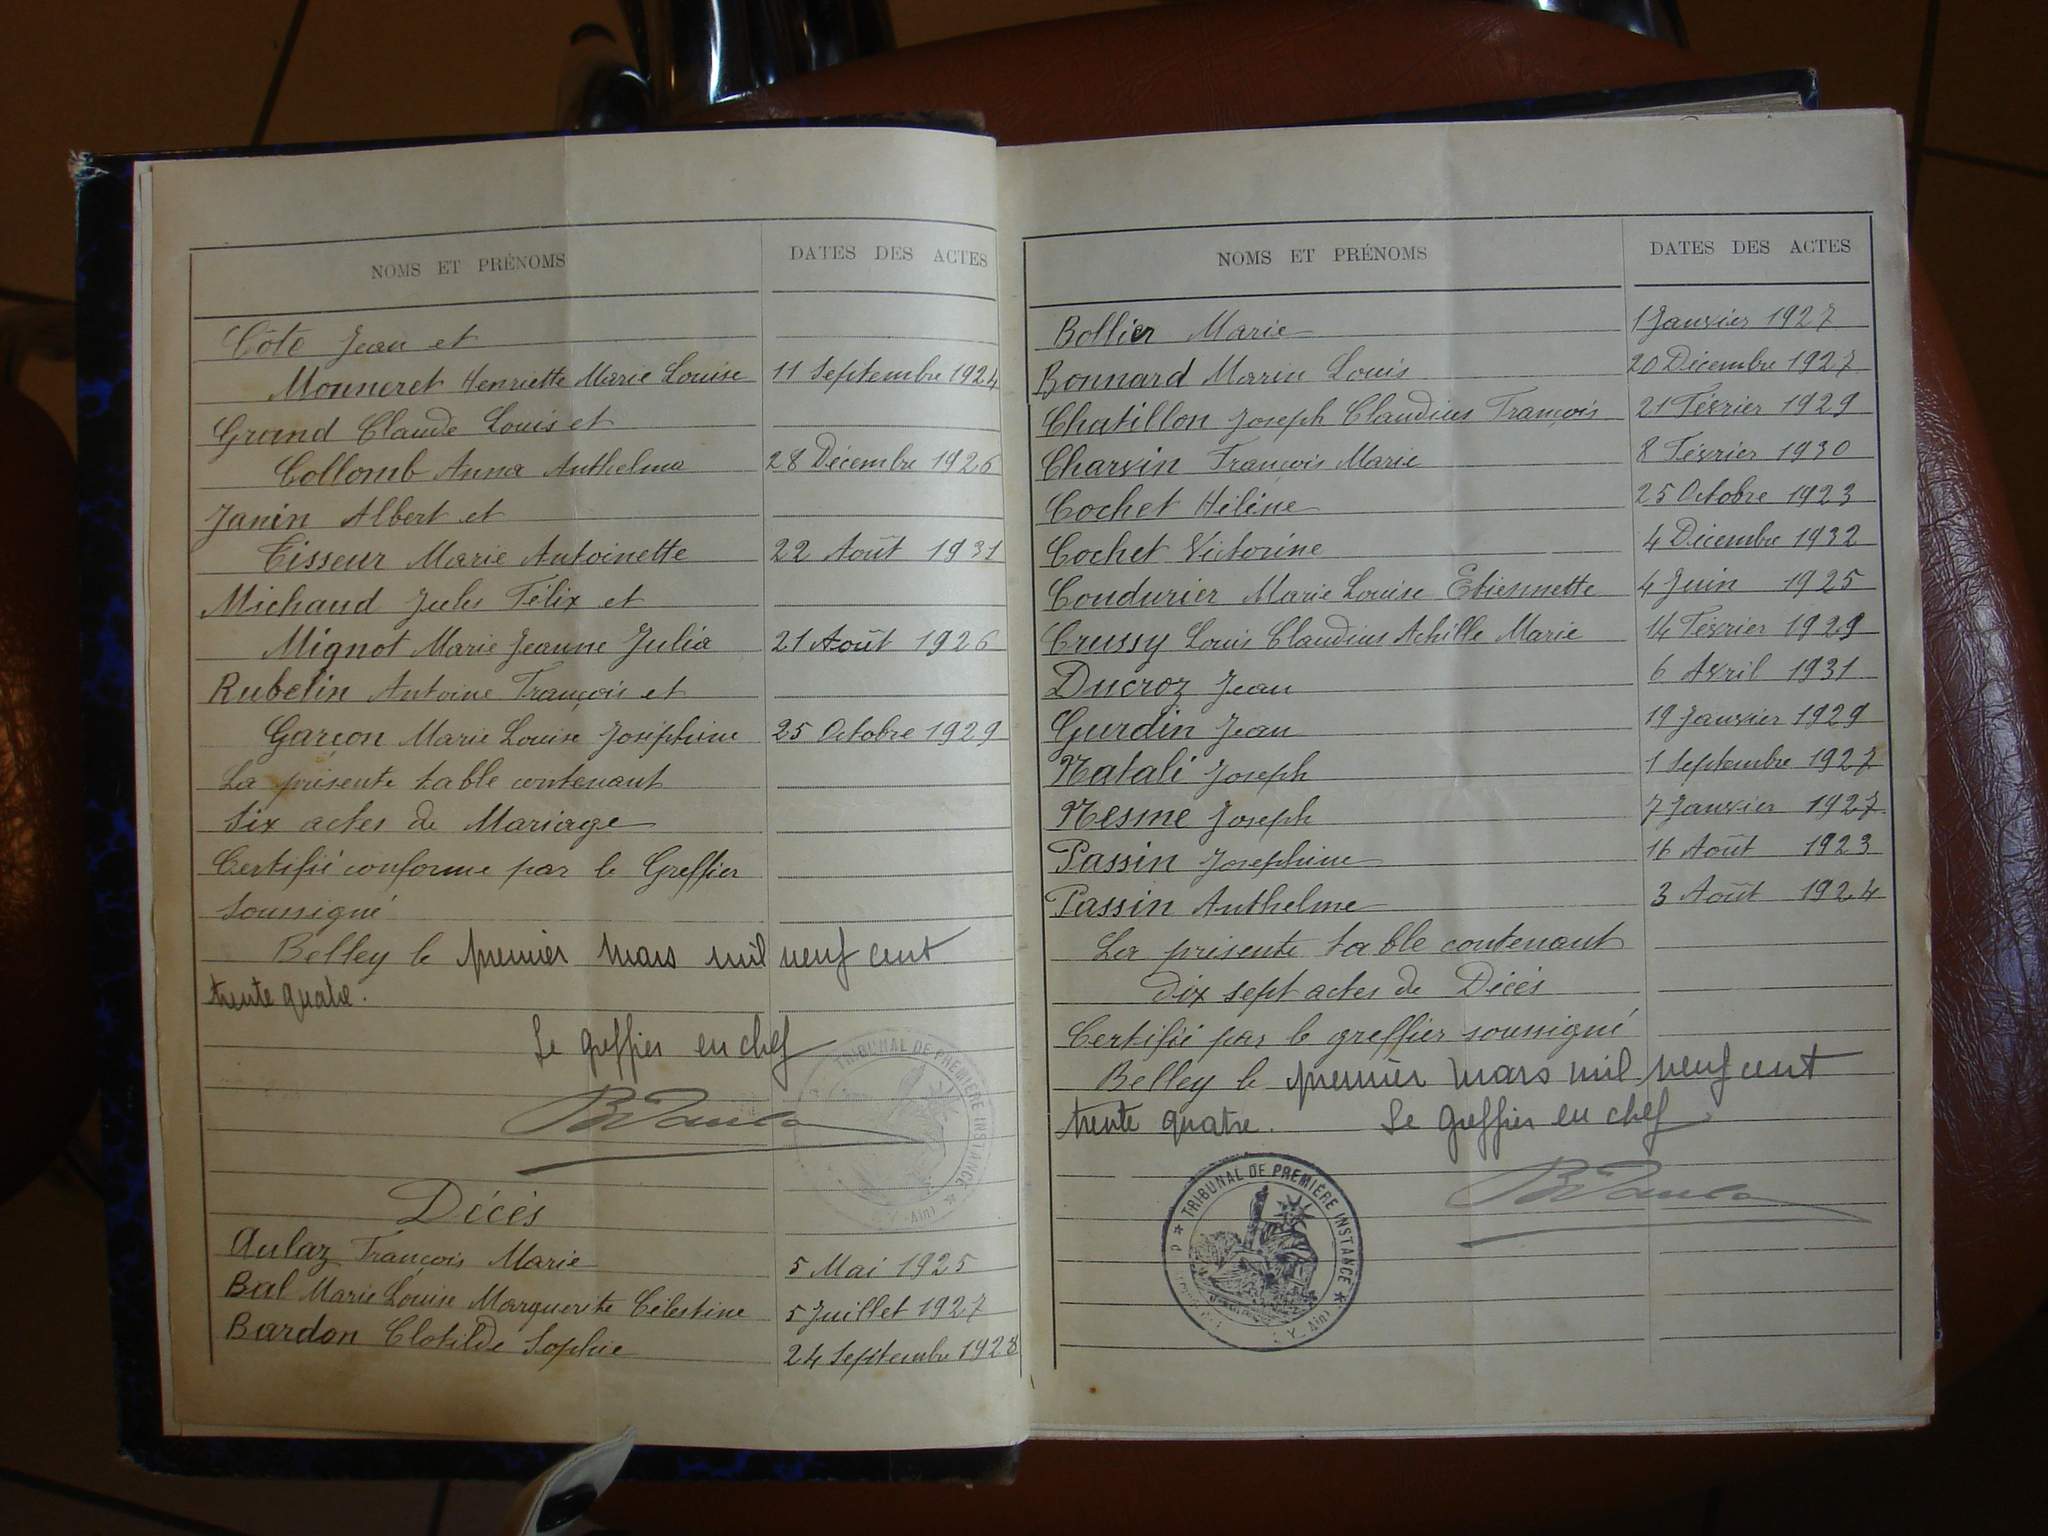 NOMS ET PRÉNOMS DATES DES ACTES
Côte Jean et
Monneret Henriette Marie Louise 11 Septembre 1924
Grand Claude Louis et
Collomb Anna Anthelma 28 Décembre 1926
Janin Albert et
Tisseur Marie Antoinette 22 Août 1931
Michaud Jules Félix et
Mignot Marie Jeanne Julia 21 Août 1926
Rubelin Antoine François et
Garçon Marie Louise Joséphine 25 Octobre 1929
La présente table contenant
six actes de Mariage
Certifié conforme par le Greffier
soussigné
Belley le premier mars mil neuf cent
trente quatre.
Le greffier en chef
TRIBUNAL DE PREMIÈRE INSTANCE
Décès
Aulaz François Marie 5 Mai 1925
Bal Marie Louise Marguerite Célestine 5 Juillet 1927
Bardon Clotilde Sophie 24 Septembre 1928
NOMS ET PRÉNOMS DATES DES ACTES
Bollier Marie 1 Janvier 1927
Bonnard Marin Louis 20 Décembre 1927
Chatillon Joseph Claudius François 21 Février 1929
Charvin François Marie 8 Février 1930
Cochet Hélène 25 Octobre 1923
Cochet Victorine 4 Décembre 1932
Coudurier Marie Louise Etiennette 4 Juin 1925
Crussy Louis Claudius Achille Marie 14 Février 1929
Ducroz Jean 6 Avril 1931
Gurdin Jean 19 Janvier 1929
Natali Joseph 1 Septembre 1927
Nesme Joseph 7 Janvier 1927
Passin Joséphine 16 Août 1923
Passin Anthelme 3 Août 1924
La présente table contenant
dix sept actes de Décès
Certifié par le greffier soussigné
Belley le premier mars mil neuf cent
trente quatre. Le greffier en chef
TRIBUNAL DE PREMIÈRE INSTANCE